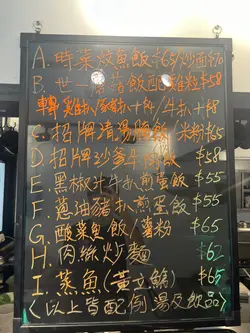 A. 時菜炆魚飯 $65/炒面+10
B. 世一蕃茄飯配雞粒$58
轉雞扒/豬扒+$4/牛扒+$8
C. 招牌清湯腩飯/米粉$65
D. 招牌沙爹牛肉飯 $58
E. 黑椒牛扒煎蛋飯 $55
F. 蔥油豬扒煎蛋飯 $55
G. 酸菜魚飯/薯粉 $65
H. 肉絲炒麵 $62
I. 蒸魚(黃立鯧) $65
<以上皆配例湯及飲品>